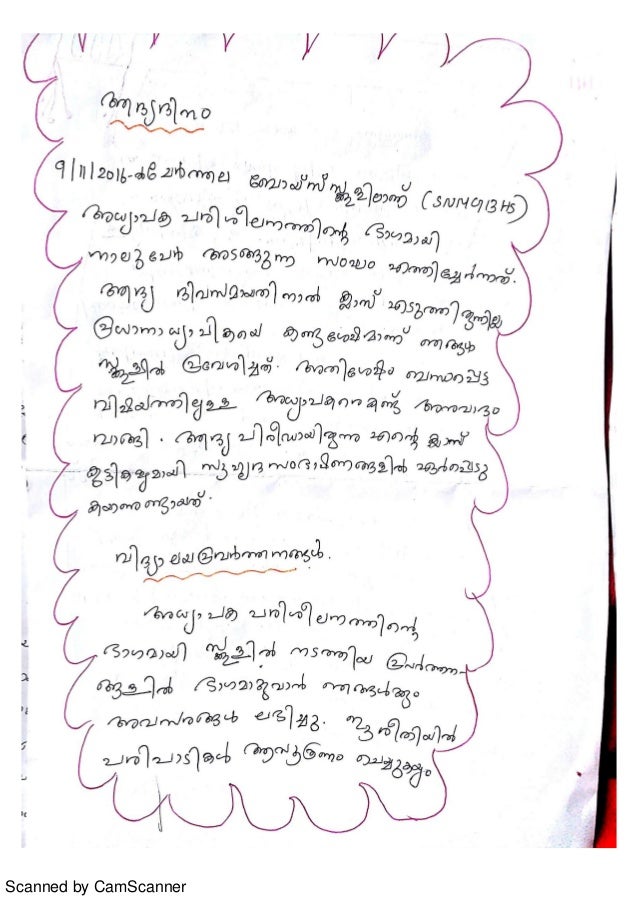 ആദ്യദിനം
9/11/2016-ൽ ചേർത്തല ബോയ്സ് സ്കൂളിലാണ് (SNMGBHS)
അധ്യാപക പരിശീലനത്തിന്റെ ഭാഗമായി
നാലുപേർ അടങ്ങുന്ന സംഘം എത്തിച്ചേർന്നത്.
ആദ്യ ദിവസമായതിനാൽ ക്ലാസ് എടുത്തിരുന്നില്ല
പ്രധാനാധ്യാപികയെ കണ്ടശേഷമാണ് ഞങ്ങൾ
സ്കൂളിൽ പ്രവേശിച്ചത്. അതിശേഷം ബന്ധപ്പെട്ട
വിഷയത്തിലുള്ള അധ്യാപകനെ കണ്ട് അനുവാദം
വാങ്ങി. ആദ്യ പിരീഡായിരുന്നു എന്റെ ക്ലാസ്
കുട്ടികളുമായി സുഹൃദ സംഭാഷണങ്ങളിൽ ഏർപ്പെടു
കയാണുണ്ടായത്.
വിദ്യാലയപ്രവർത്തനങ്ങൾ.
അധ്യാപക പരിശീലനത്തിന്റെ
ഭാഗമായി സ്കൂളിൽ നടത്തിയ പ്രവർത്തന-
ങ്ങളിൽ ഭാഗമാകുവാൻ ഞങ്ങൾക്കും
അവസരങ്ങൾ ലഭിച്ചു. ഈ രീതിയിൽ
പരിപാടികൾ ആസൂത്രണം ചെയ്യുകയും
Scanned by CamScanner